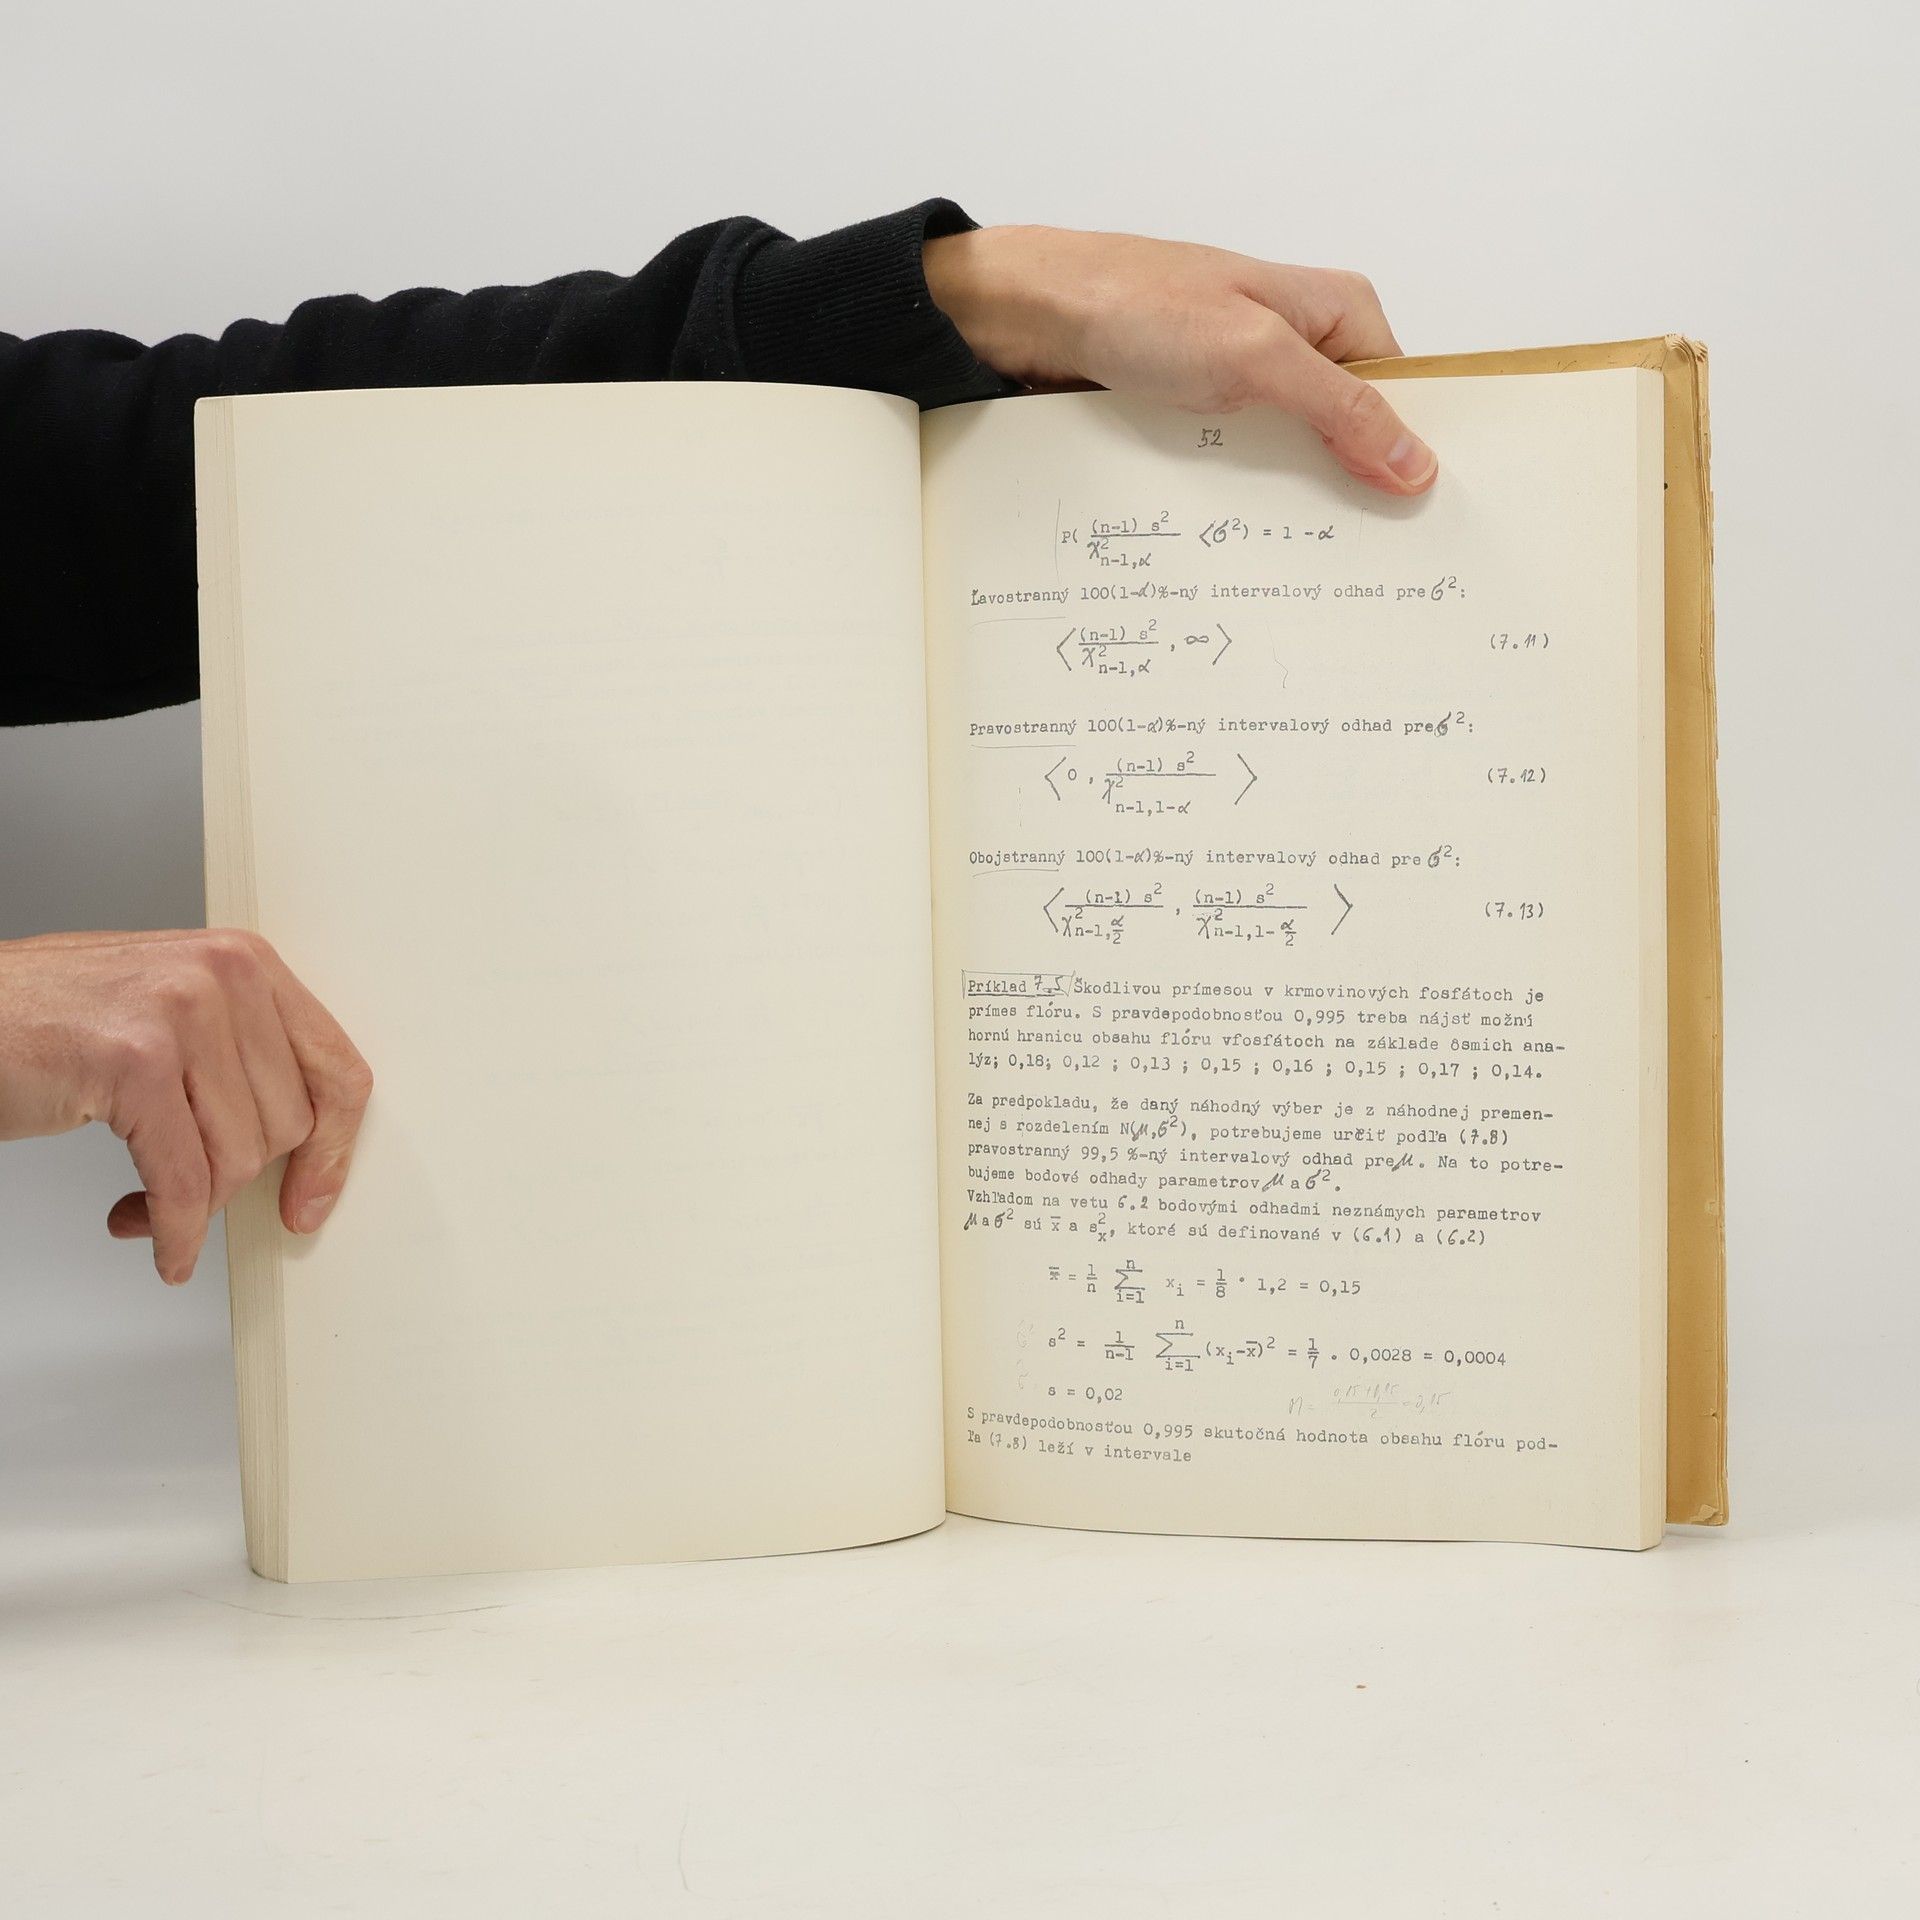 52
P( (n-1) s² / χ²n-1,α < σ²) = 1 - α
Ľavostranný 100(1-α)%-ný intervalový odhad pre σ²:
⟨ (n-1) s² / χ²n-1,α , ∞ ⟩ (7.11)
Pravostranný 100(1-α)%-ný intervalový odhad pre σ²:
⟨ 0 , (n-1) s² / χ²n-1,1-α ⟩ (7.12)
Obojstranný 100(1-α)%-ný intervalový odhad pre σ²:
⟨ (n-1) s² / χ²n-1,α/2 , (n-1) s² / χ²n-1,1-α/2 ⟩ (7.13)
Príklad 7.5 Škodlivou prímesou v krmovinových fosfátoch je
prímes flóru. S pravdepodobnosťou 0,995 treba nájsť možnú
hornú hranicu obsahu flóru vfosfátoch na základe ôsmich ana-
lýz; 0,18; 0,12 ; 0,13 ; 0,15 ; 0,16 ; 0,15 ; 0,17 ; 0,14.
Za predpokladu, že daný náhodný výber je z náhodnej premen-
nej s rozdelením N(μ,σ²), potrebujeme určiť podľa (7.8)
pravostranný 99,5 %-ný intervalový odhad pre μ. Na to potre-
bujeme bodové odhady parametrov μ a σ².
Vzhľadom na vetu 6.2 bodovými odhadmi neznámych parametrov
μ a σ² sú x̅ a s²x, ktoré sú definované v (6.1) a (6.2)
x̅ = 1/n n∑i=1 xi = 1/8 · 1,2 = 0,15
s² = 1/n-1 n∑i=1 (xi-x̅)² = 1/7 . 0,0028 = 0,0004
s = 0,02
S pravdepodobnosťou 0,995 skutočná hodnota obsahu flóru pod-
ľa (7.8) leží v intervale